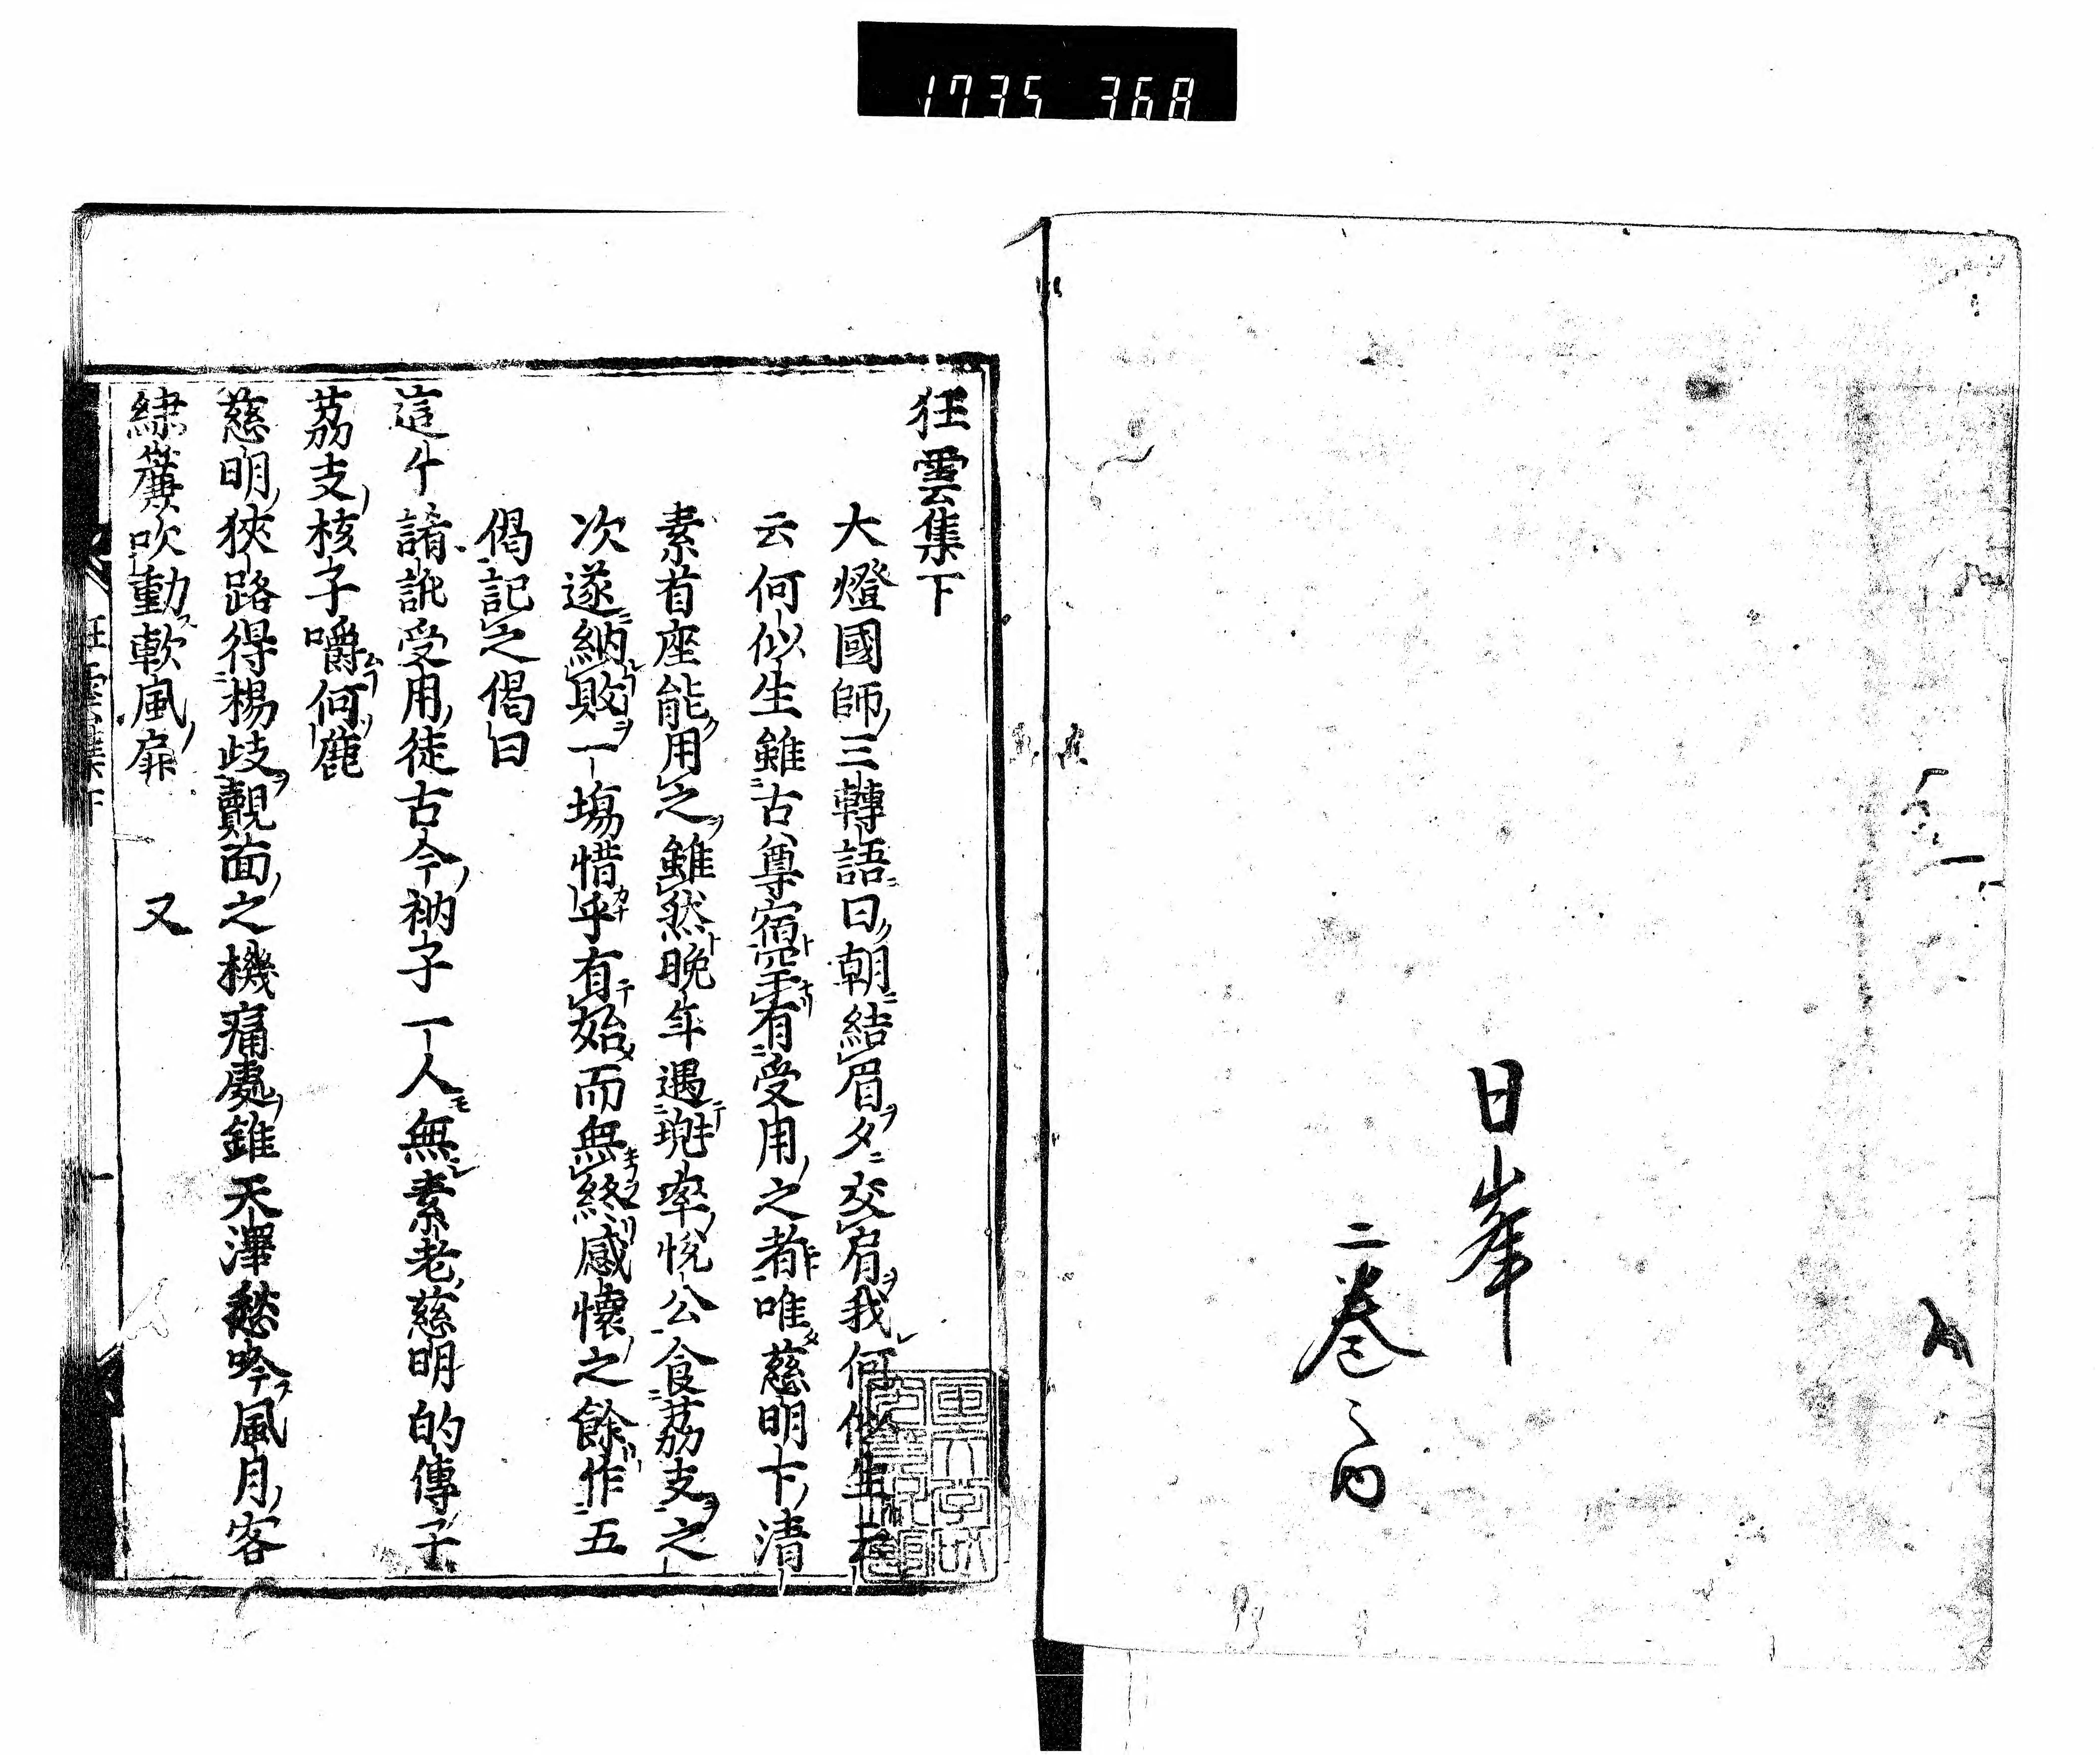 1735 368
日峯
二巻之内
狂雲集下
大燈國師三轉語曰朝結眉夕交肩我何似生
云何似生雖古尊宿罕有受用之者唯慈明下清
素首座能用之雖然晩年遇兜率悅公食茘支之
次遂納敗一塲惜乎有始而無終感懷之餘作五
偈記之偈曰
這个誵訛受用徒古今衲子一人無素老慈明的傳子
茘支核子嚼何麁
慈明狹路得楊歧覿面之機痛處錐天澤愁吟風月客
繍簾吹動軟風扉 又
狂雲集下